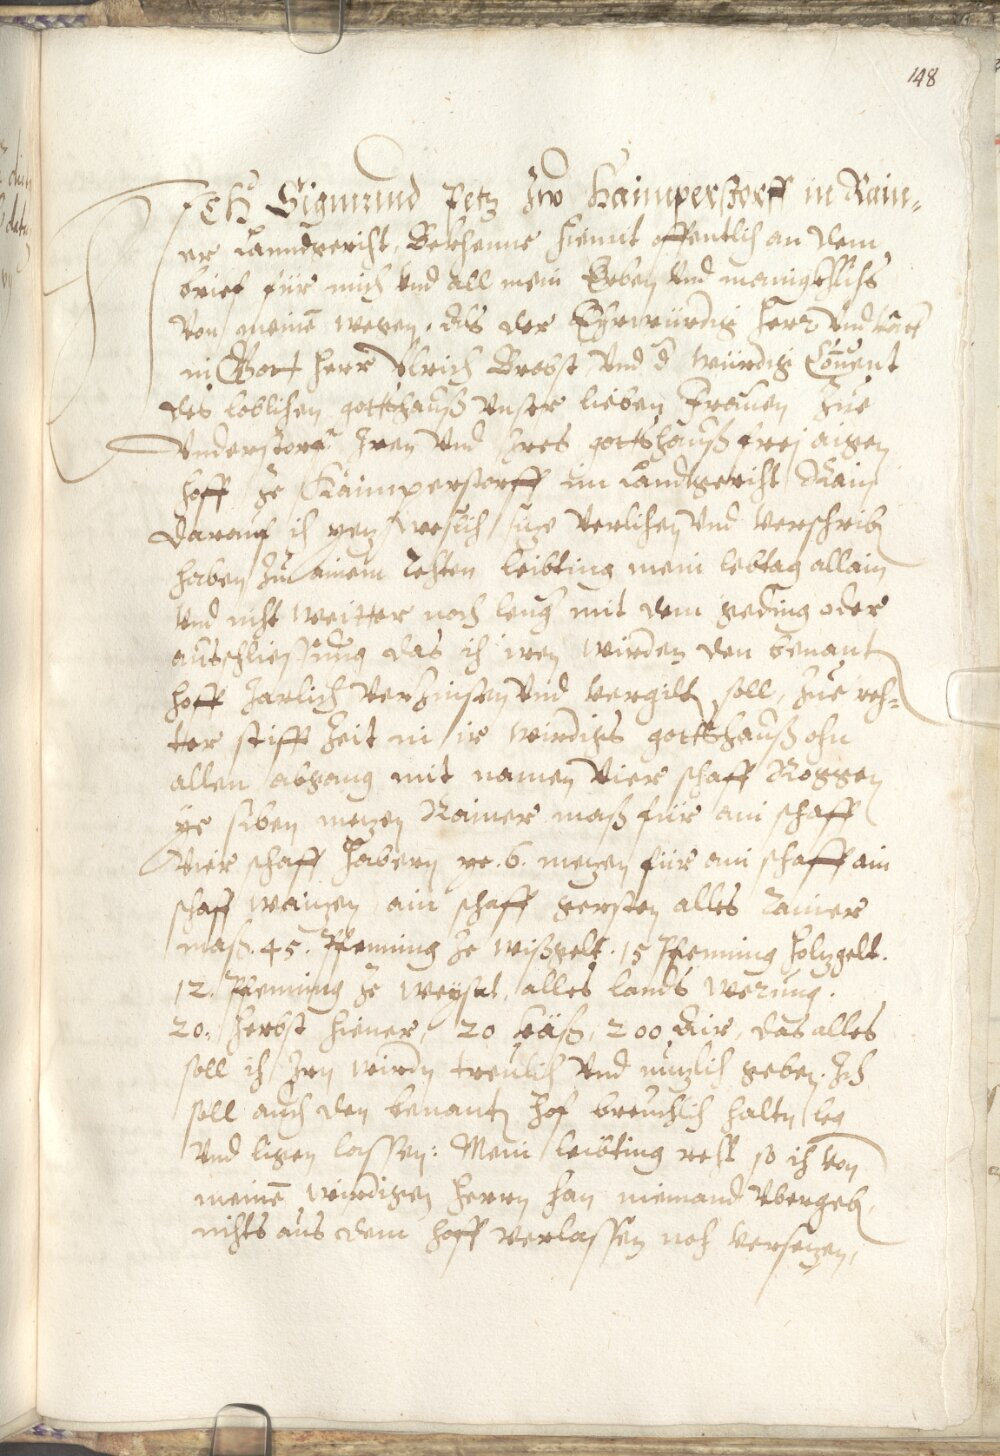 148
ICH Sigmund Petz zw Kaimperstorff in Rain-
er Lanndgericht, Bekhenne hiemit offentlich an dem
brief für mich vnd all mein Erben vnd menigklichs
von meinē wegen, Als der Eyrwürdig herr vnd vater
in Gott Herr Vlrich Brobst vnd d würdig Cōuent
des loblichen gottshauß vnser lieben Frauen zue
Vnderstorf Iren vnd Ires gottshauß frej aigen
hoff ze Kaimperstorff im Landgericht Rain
darauf ich yetz wesslich sitze verlihen vnd verschrib
haben zu ainem rechten leibting mein lebtag allain
vnd nicht weitter noch leng mit dem geding oder
aufschliessung das ich iren wirden den benant
hoff Jarlich verzinsen vnd vergilt soll, zue rech-
ter stifft zeit in ir wirdigs gottshauß ohn
allen abgang mit namen vier schaff Roggen
ye siben metzen Rainer maß für ain schaff
Vier schaff habern ye .6. metzen für ain schaff ain
schaff waitzen ain schaff gersten alles Rainer
maß. 45. Pfenning ze wißgelt. 15 Pfenning holtzgelt.
12. Pfenning ze weysat, alles lands werung.
20. herbst hiener, 20 käß, 200 Air, das alles
soll ich Irn wirdn treulich vnd nutzlich geben. Ich
soll auch den benant hof breuchlich haltn leg
vnd ligen lassen: Mein leibting recht so ich von
meinē wirdigen herrn han niemand vbergeb,
nichts aus dem hoff verlassen noch versetzen,